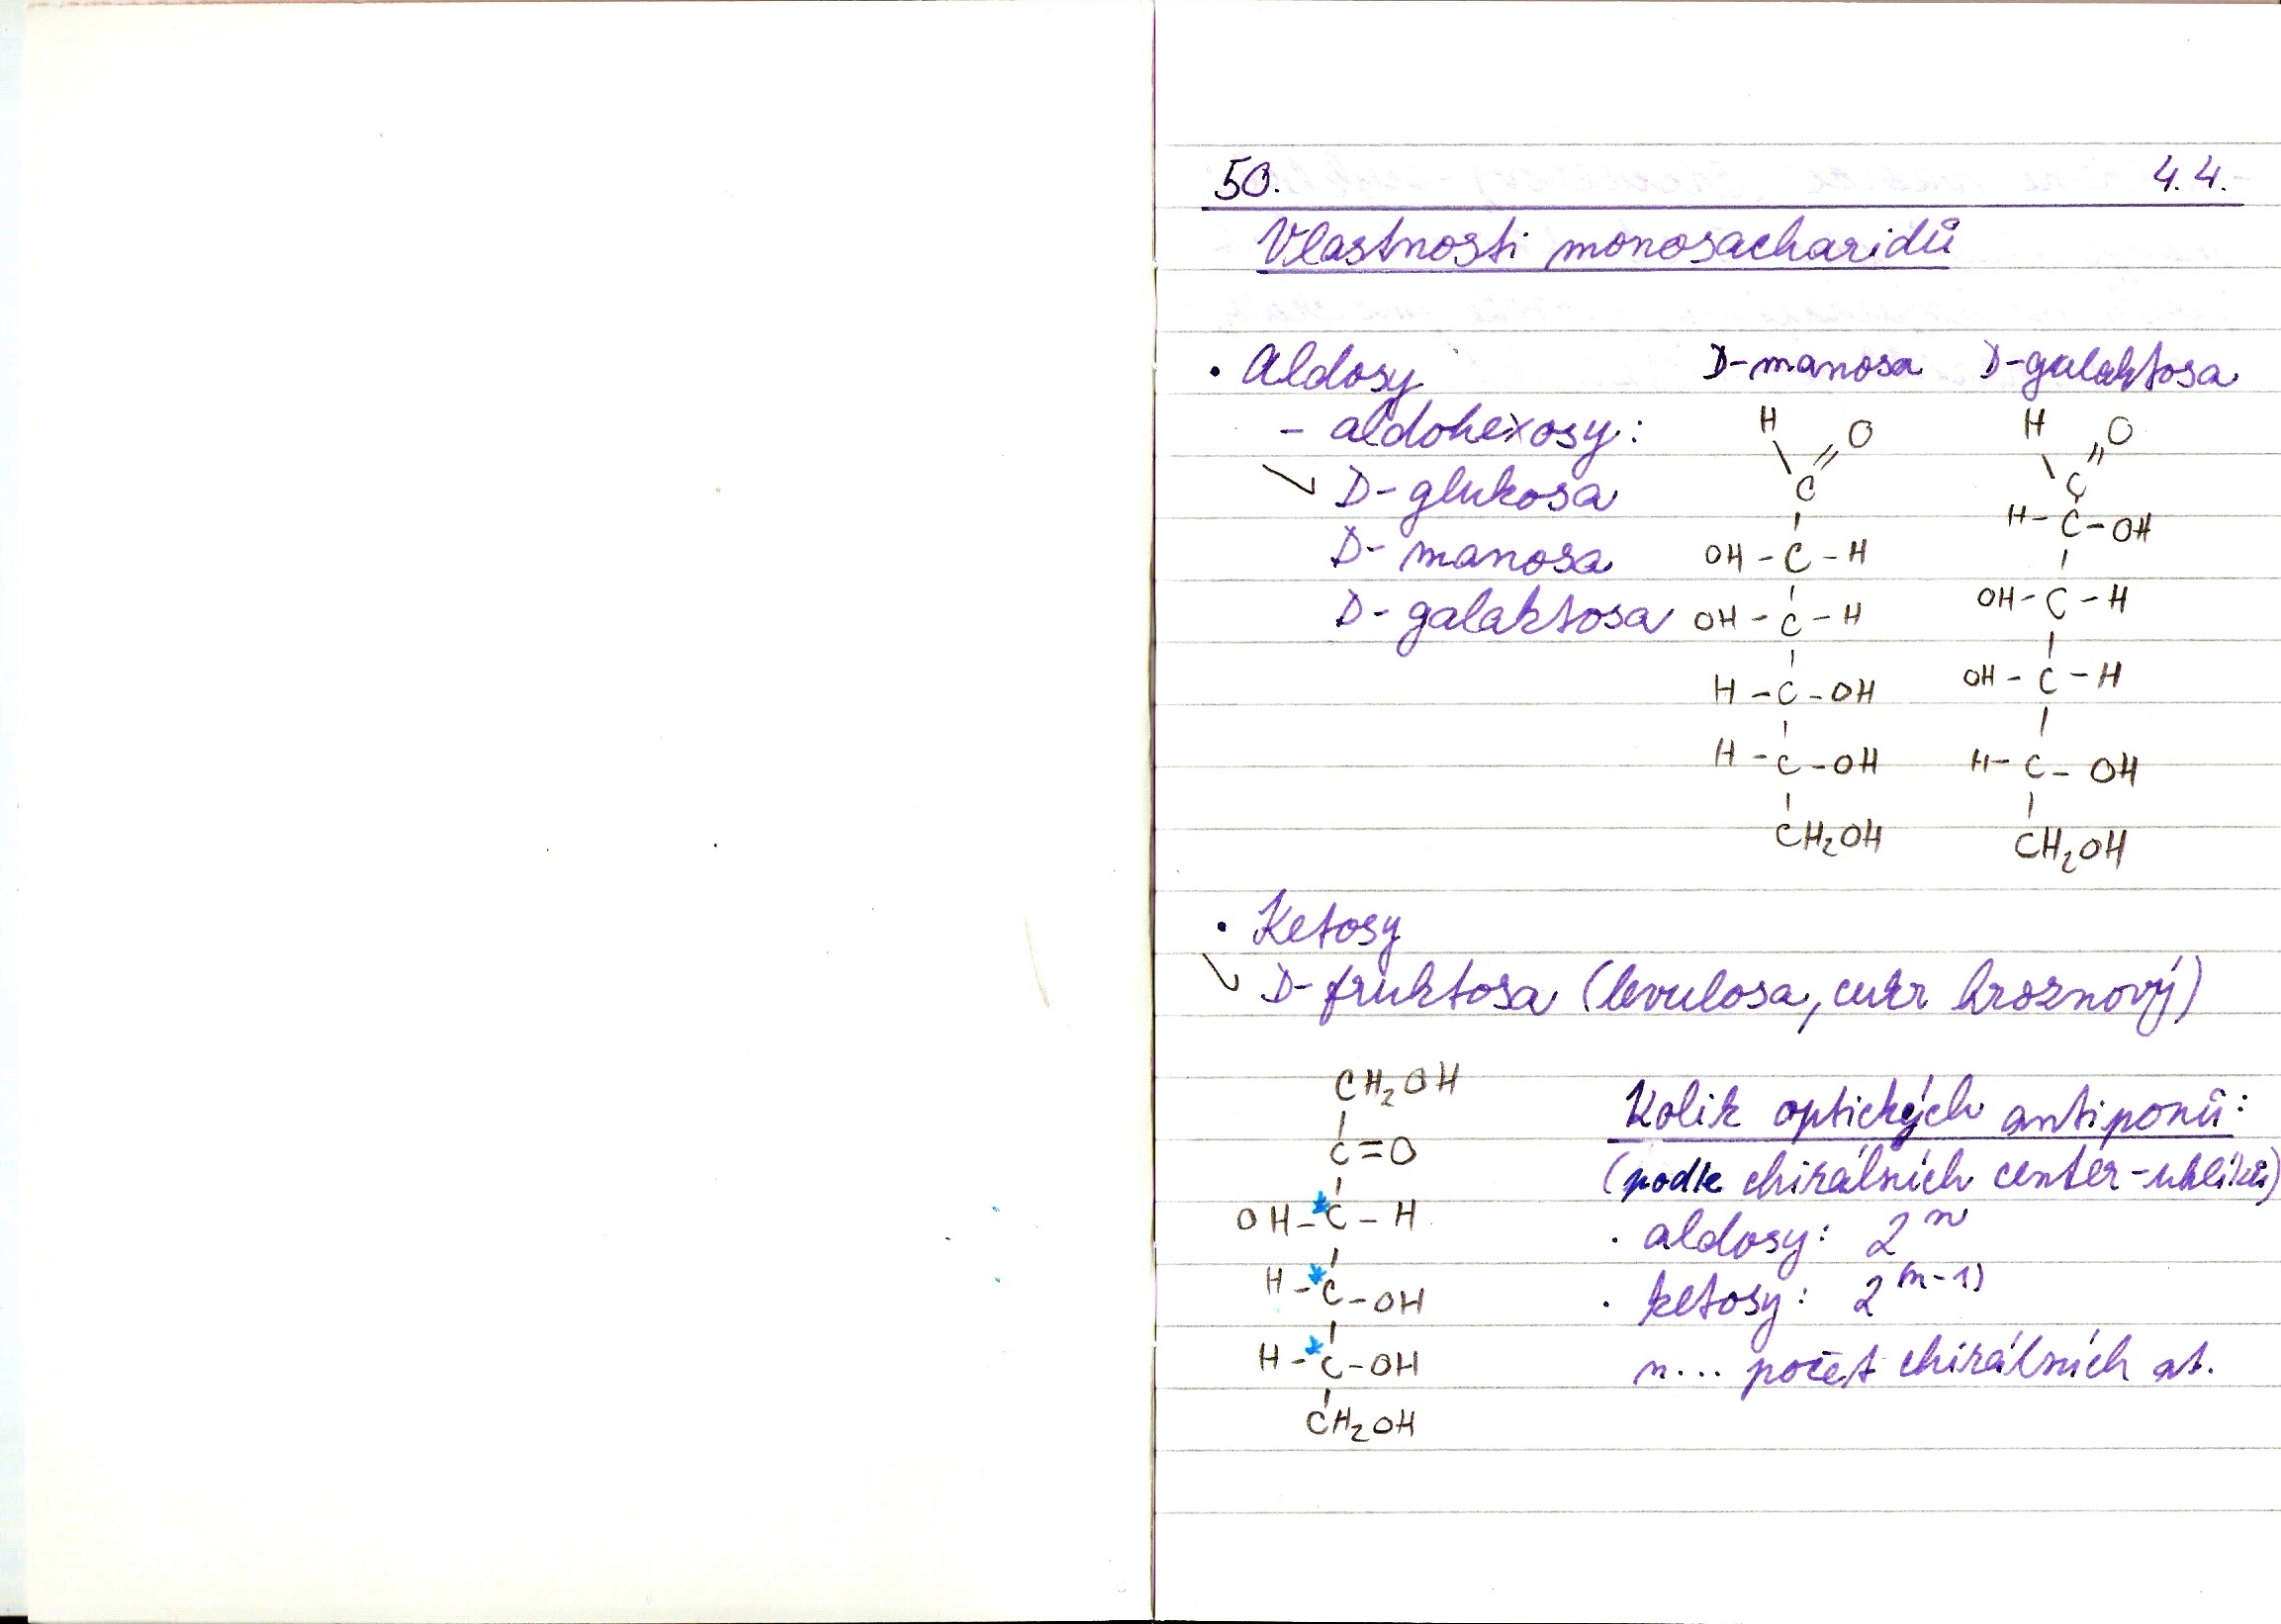 50. 4.4.
Vlastnosti monosacharidů
• Aldosy
– aldohexosy:
D- glukosa
D- manosa
D- galaktosa
D-manosa D-galaktosa
H O
C
OH - C - H
OH - C - H
H - C - OH
H - C - OH
CH₂OH
H O
C
H - C - OH
OH - C - H
OH - C - H
H - C - OH
CH₂OH
• Ketosy
D- fruktosa (levulosa, cukr hroznový)
CH₂OH
C=O
OH - *C - H
H - *C - OH
H - *C - OH
CH₂OH
Kolik optických antiponů:
(podle chirálních center - uhlíků)
• aldosy: 2ⁿ
• ketosy: 2⁽ⁿ⁻¹⁾
n... počet chirálních at.